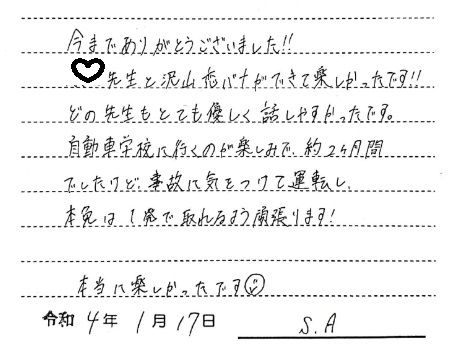 今までありがとうございました!!
♡先生と沢山恋バナができて楽しかったです!!
どの先生もとても優しく話しやすかったです。
自動車学校に行くのが楽しみで、約2ヶ月間
でしたけど、事故に気をつけて運転し、
本免は1発で取れるよう頑張ります!
本当に楽しかったです☺
令和 4年 1月 17日 S.A